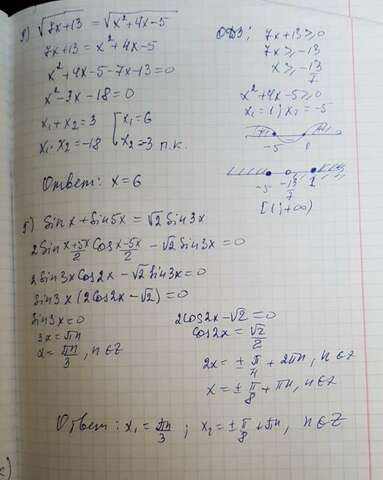 √7x+13 = √x²+4x-5
7x+13 = x²+4x-5
x²+4x-5-7x-13=0
x²-3x-18=0
x₁+x₂=3 [x₁=6
x₁·x₂=-18 x₂=-3 п.к.
Ответ: x=6
ОДЗ: 7x+13≥0
7x≥-13
x≥-13/7
x²+4x-5≥0
x₁=1; x₂=-5
-5 1
-5 -13/7 1
[1;+∞)
Sinx+Sin5x=√2Sin3x
2Sin x+5x/2 Cos x-5x/2 -√2Sin3x=0
2Sin3xCos2x-√2Sin3x=0
Sin3x(2Cos2x-√2)=0
Sin3x=0 2cos2x-√2=0
3x=πn cos2x=√2/2
x=πn/3, n∈Z 2x=±π/4+2πn, n∈Z
x=±π/8+πn, n∈Z
Ответ: x₁=πn/3; x₂=±π/8+πn, n∈Z